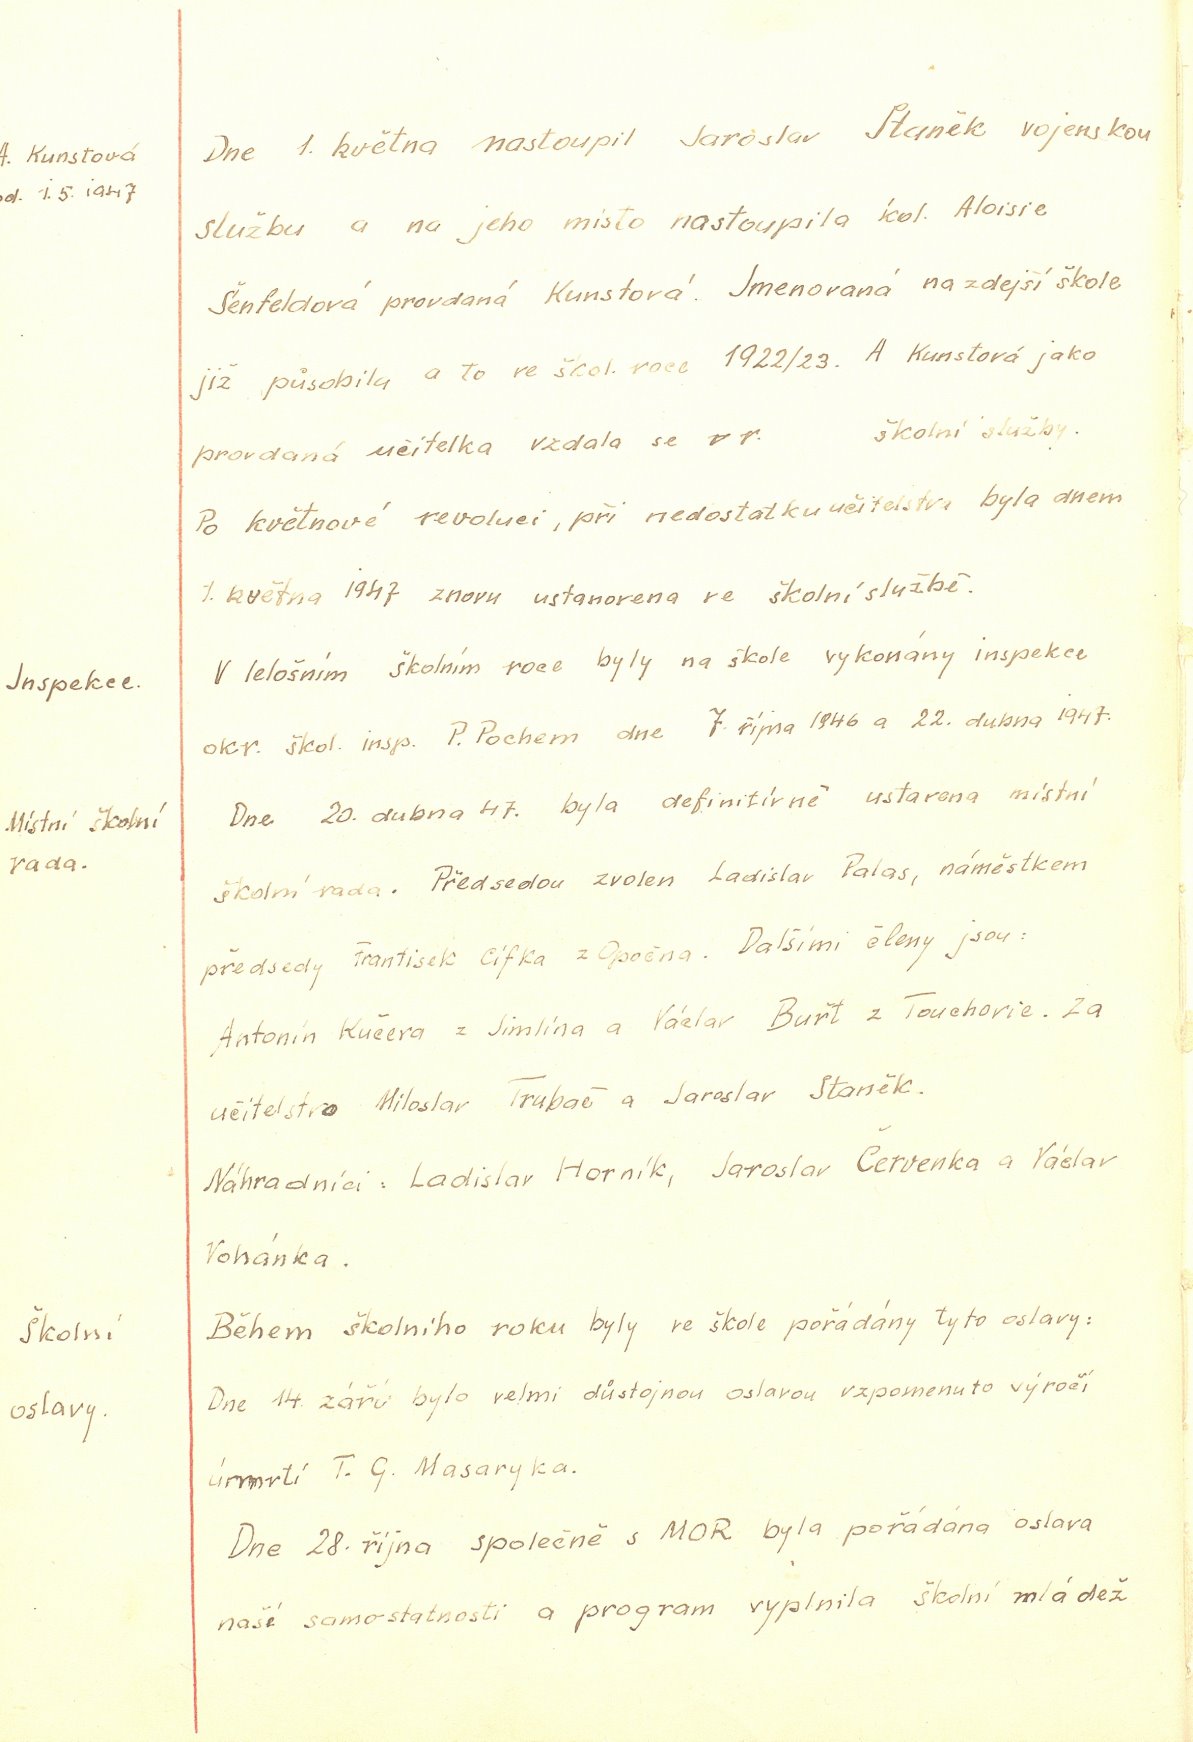 A. Kunstová
od. 1. 5. 1947
Dne 1. května nastoupil Jaroslav Staněk vojenskou
službu a na jeho místo nastoupila kol. Aloisie
Šénfeldová provdaná Kunstová. Jmenovaná na zdejší škole
již působila a to ve škol. roce 1922/23. A Kunstová jako
provdaná učitelka vzdala se v r. školní služby.
Po květnové revoluci, při nedostatku učitelstva byla dnem
1. května 1947 znovu ustanovena ve školní službě.
Inspekce.
V letošním školním roce byly na škole vykonány inspekce
okr. škol. insp. P. Pochem dne 7. října 1946 a 22. dubna 1947.
Místní školní
rada.
Dne 20. dubna 47. byla definitivně ustavena místní
školní rada. Předsedou zvolen Ladislav Palas, náměstkem
předsedy František Cífka z Opočna. Dalšími členy jsou:
Antonín Kučera z Jimlína a Václav Buřt z Touchovic. Za
učitelstvo Miloslav Trubač a Jaroslav Staněk.
Náhradníci: Ladislav Horník, Jaroslav Červenka a Václav
Vohánka.
Školní
oslavy.
Během školního roku byly ve škole pořádány tyto oslavy:
Dne 14. září bylo velmi důstojnou oslavou vzpomenuto výročí
úmrtí T. G. Masaryka.
Dne 28. října společně s MOR byla pořádána oslava
naší samostatnosti a program vyplnila školní mládež